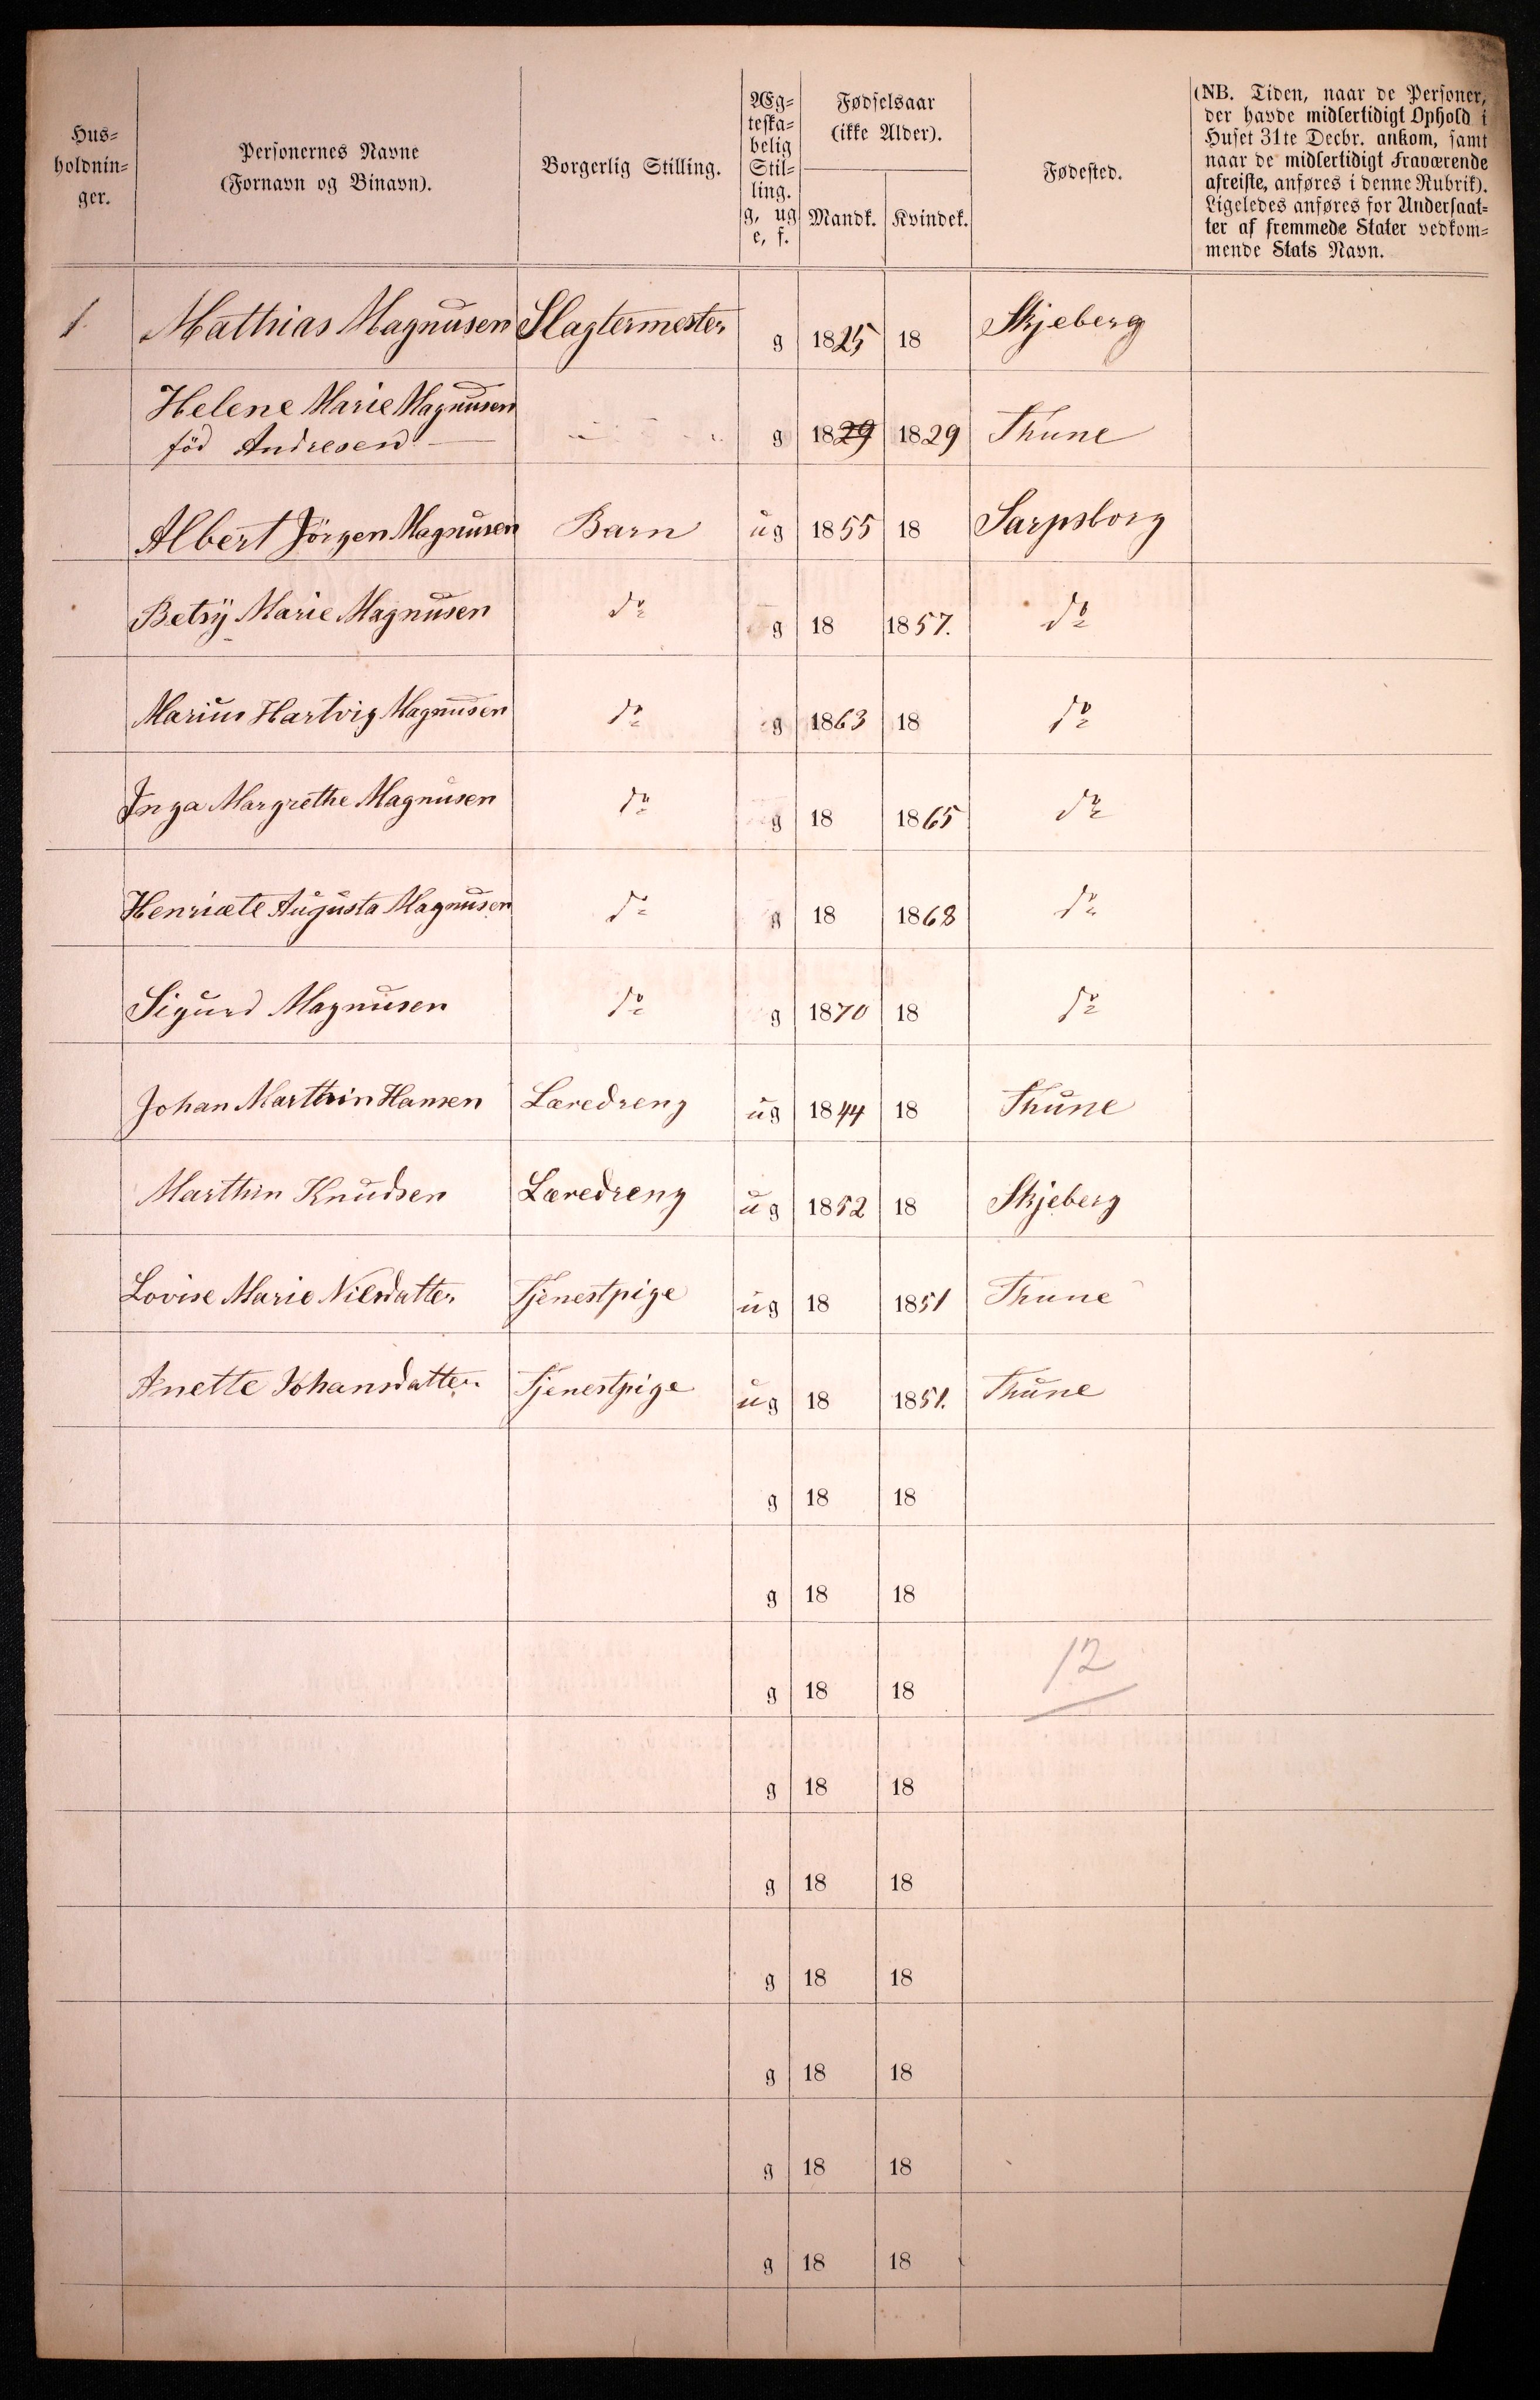 Hus-
holdnin-
ger.
Personernes Navne
(Fornavn og Binavn).
Borgerlig Stilling.
Æg-
teska-
belig
Stil-
ling.
g, ug
e, f.
Fødselsaar
(ikke Alder).
Mandk. Kvindek.
Fødested.
(NB. Tiden, naar de Personer,
der havde midlertidigt Ophold i
Huset 31te Decbr. ankom, samt
naar de midlertidigt Fraværende
afreiste, anføres i denne Rubrik).
Ligeledes anføres for Undersaat-
ter af fremmede Stater vedkom-
mende Stats Navn.
1. Mathias Magnusen Slagtermester g 1825 18 Skjeberg
Helene Marie Magnusen
föd Andresen — g 1829 1829 Thune
Albert Jörgen Magnusen Barn ug 1855 18 Sarpsborg
Betsy Marie Magnusen do g 18 1857. do
Marius Hartvig Magnusen do g 1863 18 do
Inga Margrethe Magnusen do g 18 1865 do
Henriæte Augusta Magnusen do g 18 1868 do
Sigurd Magnusen do g 1870 18 do
Johan Marthin Hansen Læredreng ug 1844 18 Thune
Marthin Knudsen Læredreng ug 1852 18 Skjeberg
Lovise Marie Nilsdatter Tjenestpige ug 18 1851 Thune
Anette Johansdatter Tjenestpige ug 18 1851. Thune
g 18 18
g 18 18
g 18 18 12
g 18 18
g 18 18
g 18 18
g 18 18
g 18 18
g 18 18